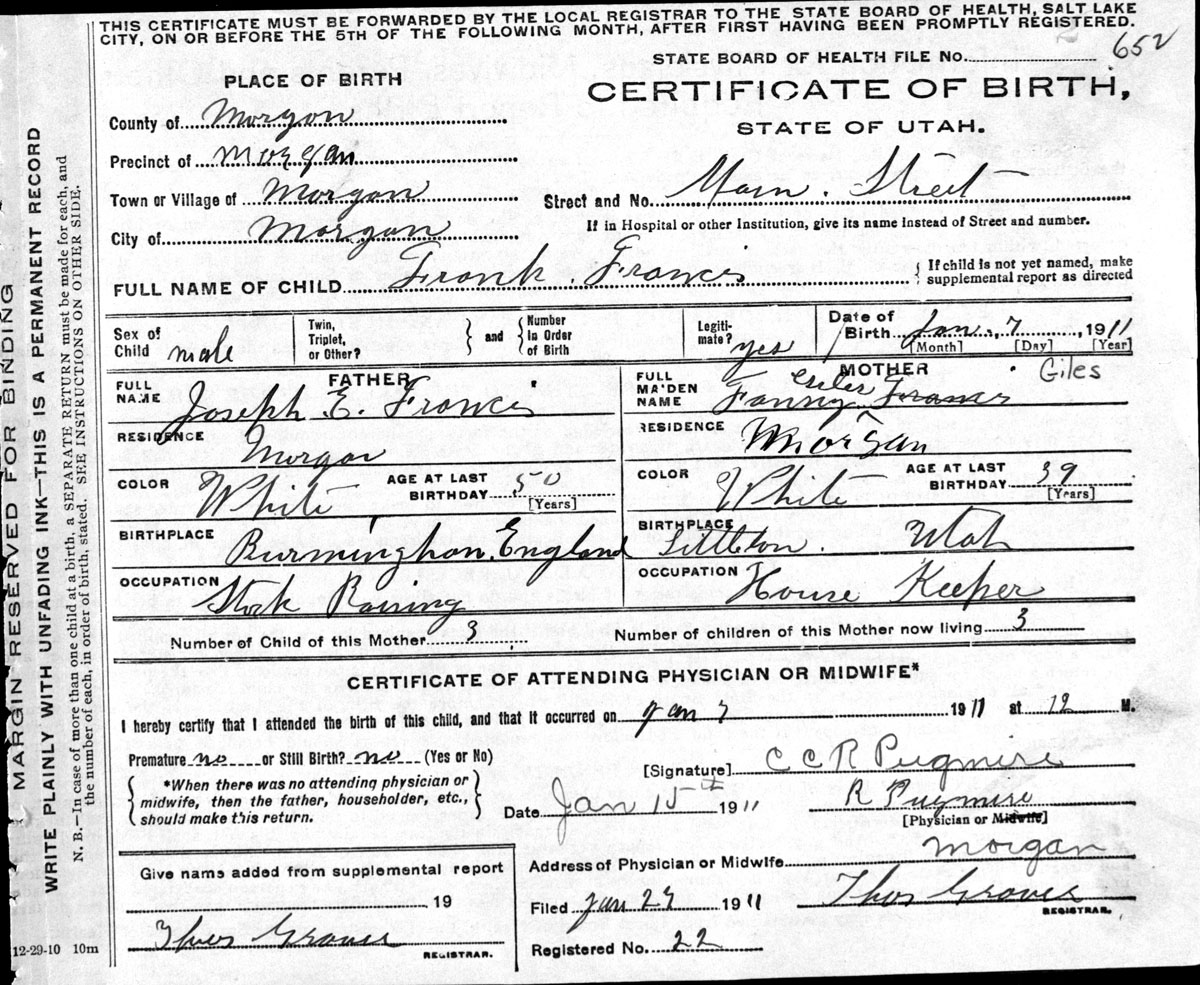 THIS CERTIFICATE MUST BE FORWARDED BY THE LOCAL REGISTRAR TO THE STATE BOARD OF HEALTH, SALT LAKE
CITY, ON OR BEFORE THE 5TH OF THE FOLLOWING MONTH, AFTER FIRST HAVING BEEN PROMPTLY REGISTERED.
652
STATE BOARD OF HEALTH FILE No.
PLACE OF BIRTH
CERTIFICATE OF BIRTH,
STATE OF UTAH.
County of Morgan
Precinct of Morgan
Town or Village of Morgan
Street and No. Main. Street
City of Morgan
If in Hospital or other Institution, give its name instead of Street and number.
FULL NAME OF CHILD Frank. Francis
{ If child is not yet named, make
supplemental report as directed
Sex of Child male
Twin, Triplet, or Other? } and { Number in Order of Birth
Legitimate? yes
Date of Birth Jan. 7, 1911
[Month] [Day] [Year]
FATHER
FULL NAME Joseph E. Francis
RESIDENCE Morgan
COLOR White AGE AT LAST BIRTHDAY 50 [Years]
BIRTHPLACE Burmingham. England
OCCUPATION Stock Raising
MOTHER
Giles
FULL MAIDEN NAME Fanny Francis
RESIDENCE Morgan
COLOR White AGE AT LAST BIRTHDAY 39 [Years]
BIRTHPLACE Littleton. Utah
OCCUPATION House Keeper
Number of Child of this Mother 3
Number of children of this Mother now living 3
CERTIFICATE OF ATTENDING PHYSICIAN OR MIDWIFE*
I hereby certify that I attended the birth of this child, and that it occurred on Jan 7 1911 at 12 M.
Premature no or Still Birth? no (Yes or No)
[Signature] C C R Pugmire
{ *When there was no attending physician or
midwife, then the father, householder, etc.,
should make this return. }
Date Jan 15th 1911
R Pugmire
[Physician or Midwife]
Address of Physician or Midwife Morgan
Give name added from supplemental report
19
Thos Grover
REGISTRAR.
Filed Jan 27 1911
Thos Grover
REGISTRAR.
Registered No. 22
12-29-10 10m
MARGIN RESERVED FOR BINDING
WRITE PLAINLY WITH UNFADING INK—THIS IS A PERMANENT RECORD
N. B.—In case of more than one child at a birth, a SEPARATE RETURN must be made for each, and
the number of each, in order of birth, stated. SEE INSTRUCTIONS ON OTHER SIDE.